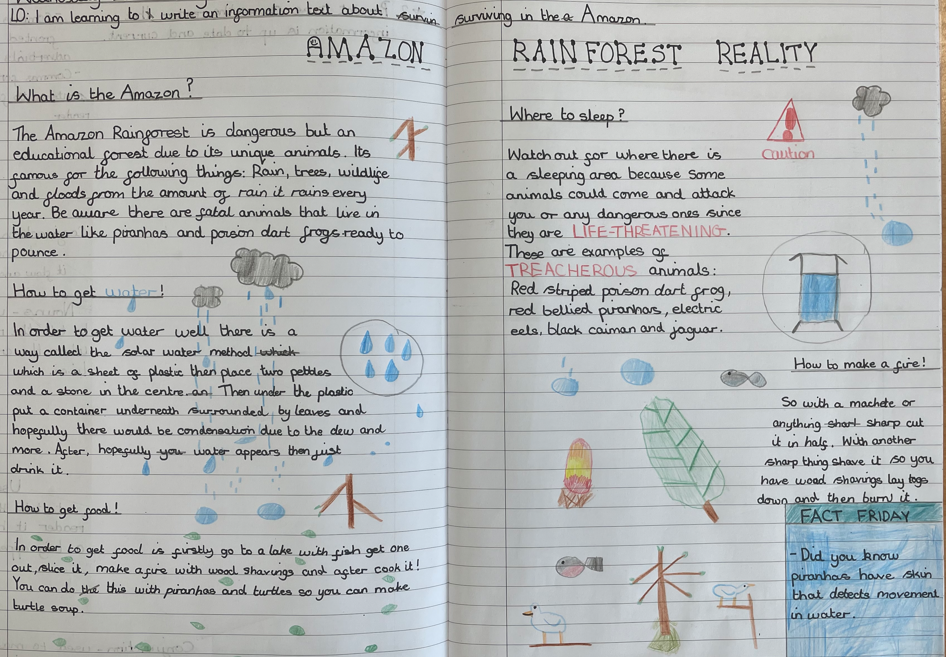 LO: I am learning to write an information text about surviving in the Amazon.
AMAZON RAINFOREST REALITY
What is the Amazon?
The Amazon Rainforest is dangerous but an
educational forest due to its unique animals. Its
famous for the following things: Rain, trees, wildlife
and floods from the amount of rain it rains every
year. Be aware there are fatal animals that live in
the water like piranhas and poison dart frogs ready to
pounce.
How to get water!
In order to get water well there is a
way called the solar water method which
which is a sheet of plastic then place two pebbles
and a stone in the centre.an Then under the plastic
put a container underneath surrounded by leaves and
hopefully there would be condensation due to the dew and
more. After, hopefully you water appears then just
drink it.
How to get food!
In order to get food is firstly go to a lake with fish get one
out, slice it, make a fire with wood shavings and after cook it!
You can do the this with piranhas and turtles so you can make
turtle soup.
Where to sleep?
caution
Watch out for where there is
a sleeping area because some
animals could come and attack
you or any dangerous ones since
they are LIFE-THREATENING.
These are examples of
TREACHEROUS animals:
Red striped poison dart frog,
red bellied piranhas, electric
eels, black caiman and jaguar.
How to make a fire!
So with a machete or
anything sharl sharp cut
it in half. With another
sharp thing shave it so you
have wood shavings lay
down and then burn it.
FACT FRIDAY
- Did you know
piranhas have skin
that detects movement
in water.